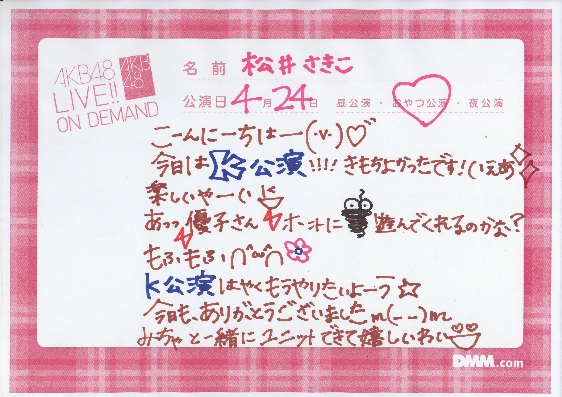 AKB48
LIVE!!
ON DEMAND
AKB
48
名前 松井さきこ
公演日 4月24日 昼公演・おやつ公演・夜公演
こーんにーちはー(・v・)♡
今日はK公演!!!! きもちよかったです!
楽しいやーい
あっっ優子さんホントに 遊んでくれるのかな?
もふもふ
K公演はやくもうやりたいよーう☆
今日も、ありがとうございましたm(--)m
みちゃと一緒にユニットできて嬉しいわい
DMM.com